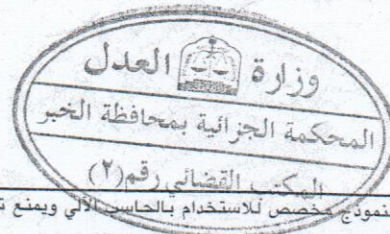 وزارة العدل
المحكمة الجزائية بمحافظة الخبر
المكتب القضائي رقم (٢)
نموذج مخصص للاستخدام بالحاسب الآلي ويمنع